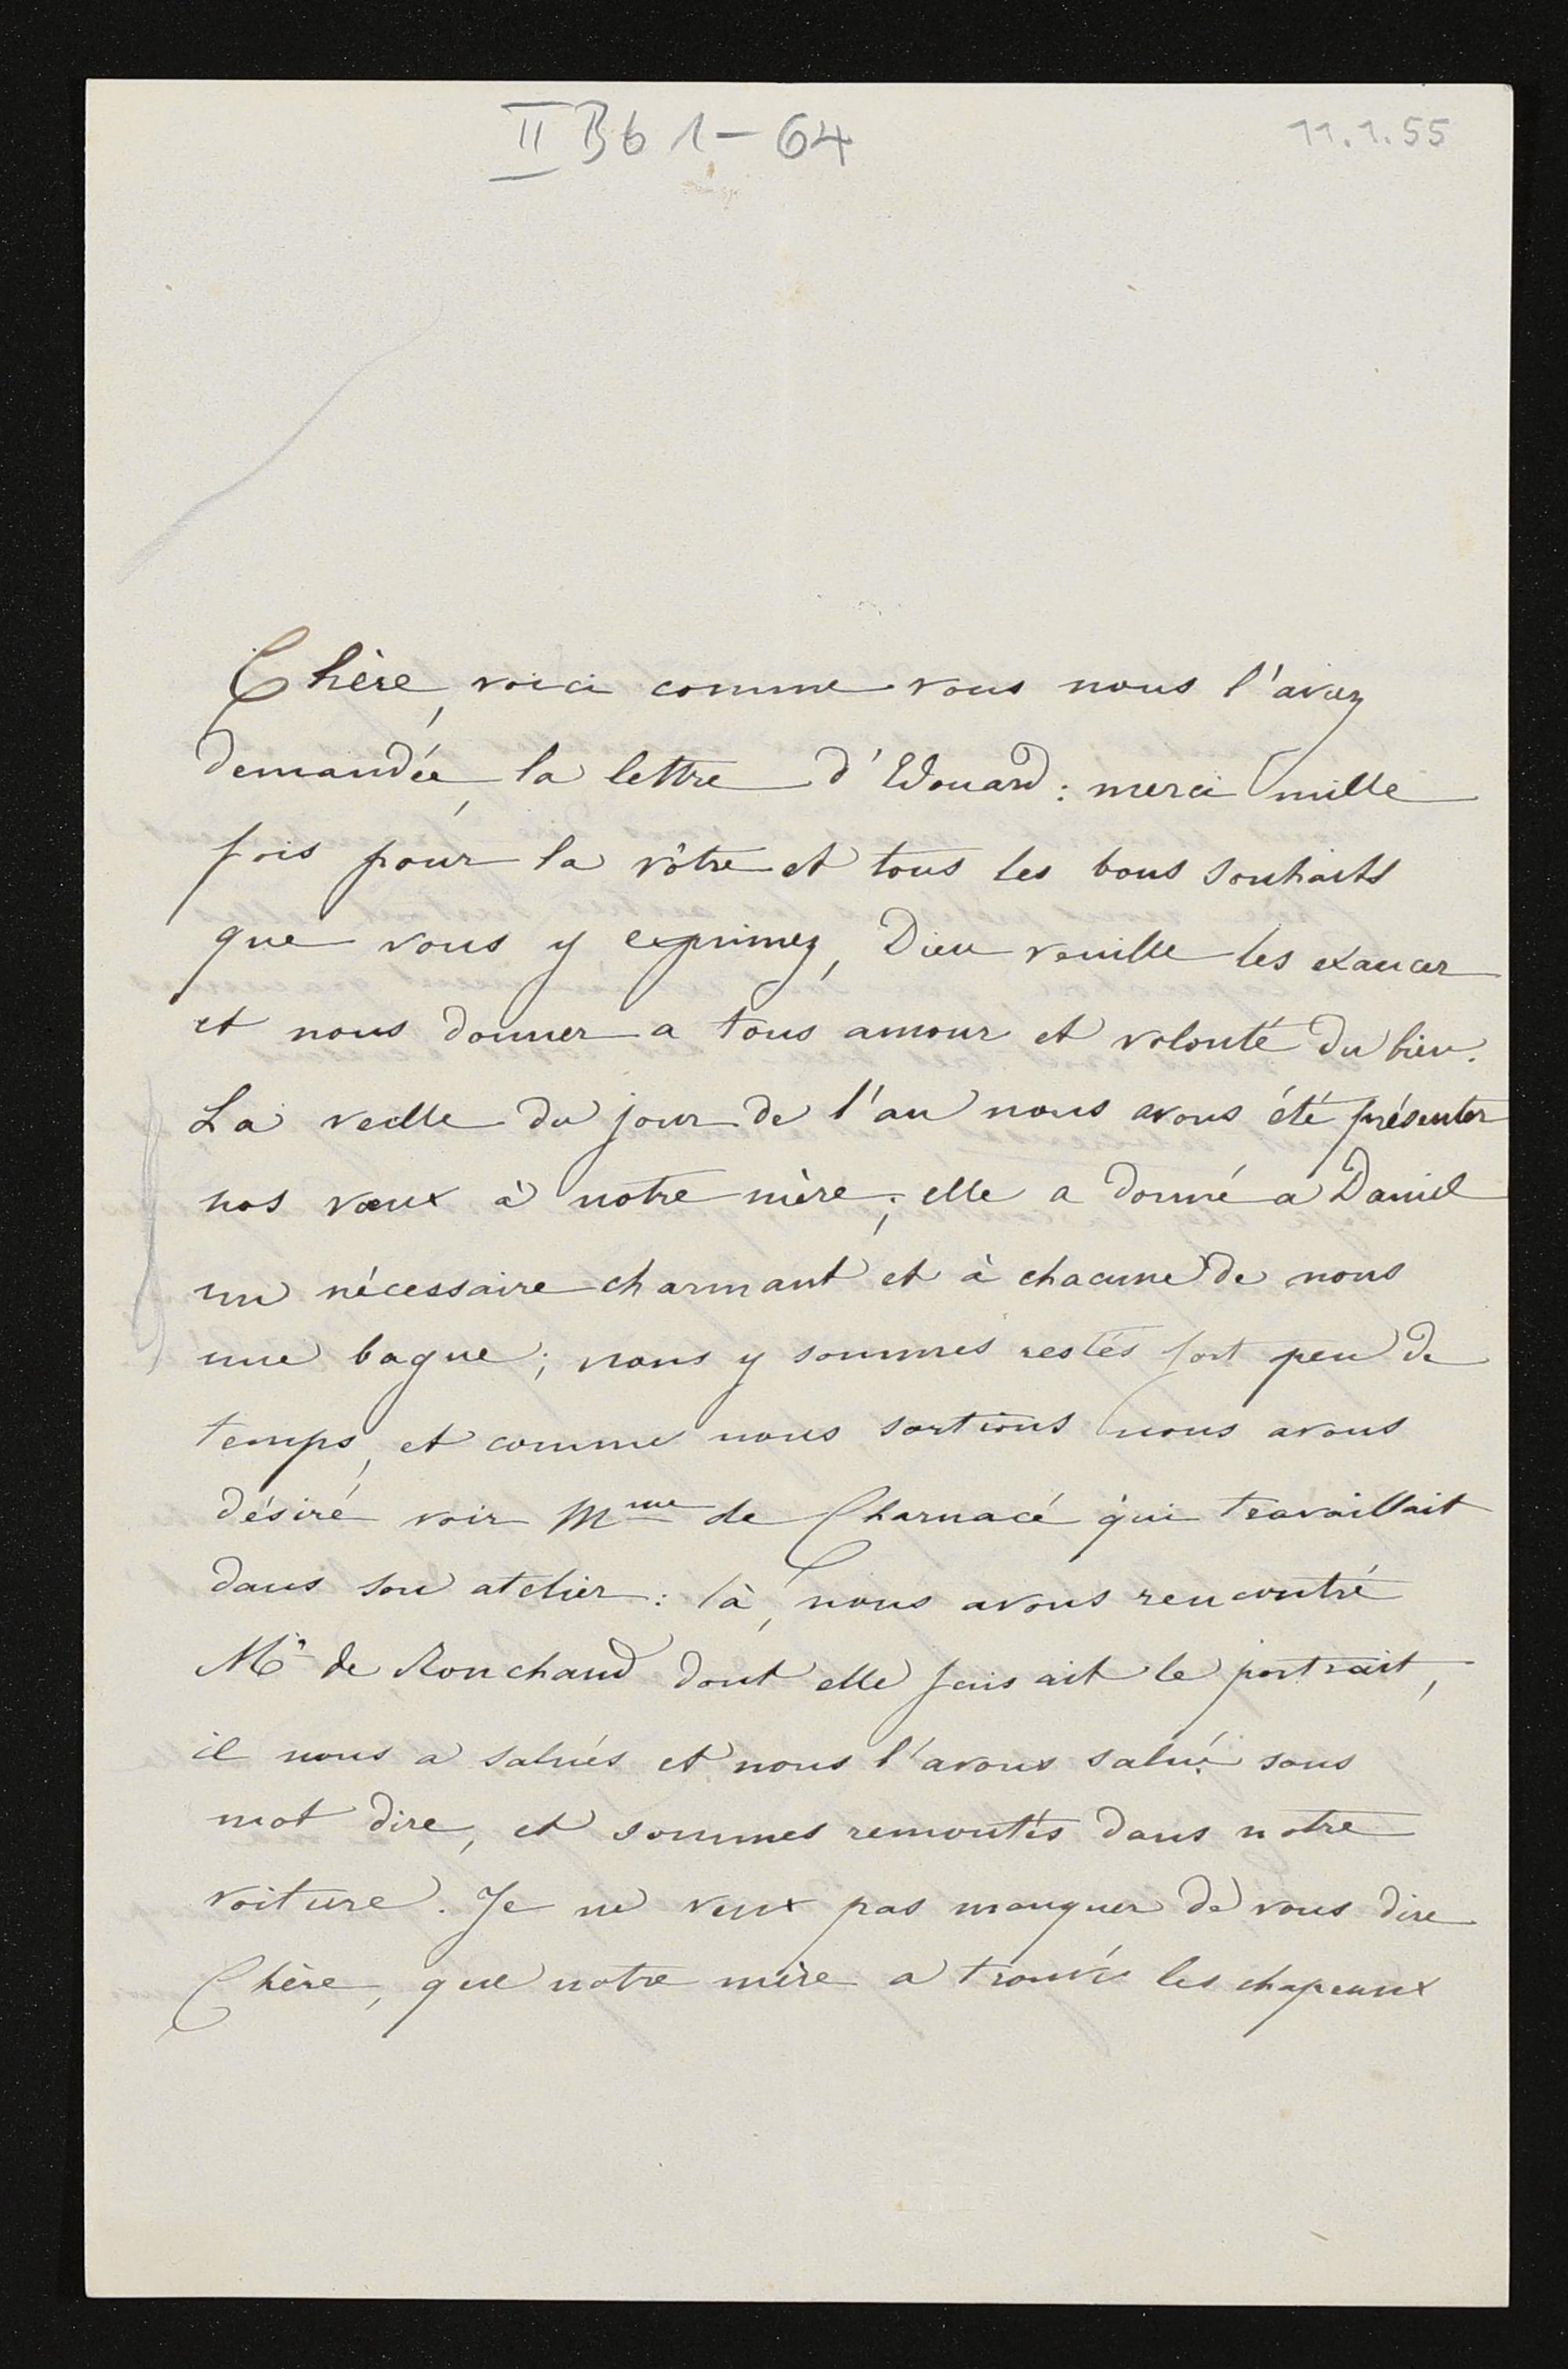 II Bb 1 – 64
11.1.55
Chère, voici comme vous nous l'avez
demandée, la lettre d'Edouard : merci mille
fois pour la vôtre et tous les bons souhaits
que vous y exprimez, Dieu veuille les exaucer
et nous donner a tous amour et volonté du bien.
La veille du jour de l'an nous avons été présenter
nos vœux à notre mère ; elle a donné a Daniel
un nécessaire charmant et à chacune de nous
une bague ; nous y sommes restés fort peu de
temps, et comme nous sortions nous avons
désiré voir Mme de Charnacé qui travaillait
dans son atelier : là, nous avons rencontré
Mr de Ronchaud dont elle faisait le portrait,
il nous a salués et nous l'avons salué sans
mot dire, et sommes remontés dans notre
voiture. Je ne veux pas manquer de vous dire
Chère, que notre mère a trouvé les chapeaux